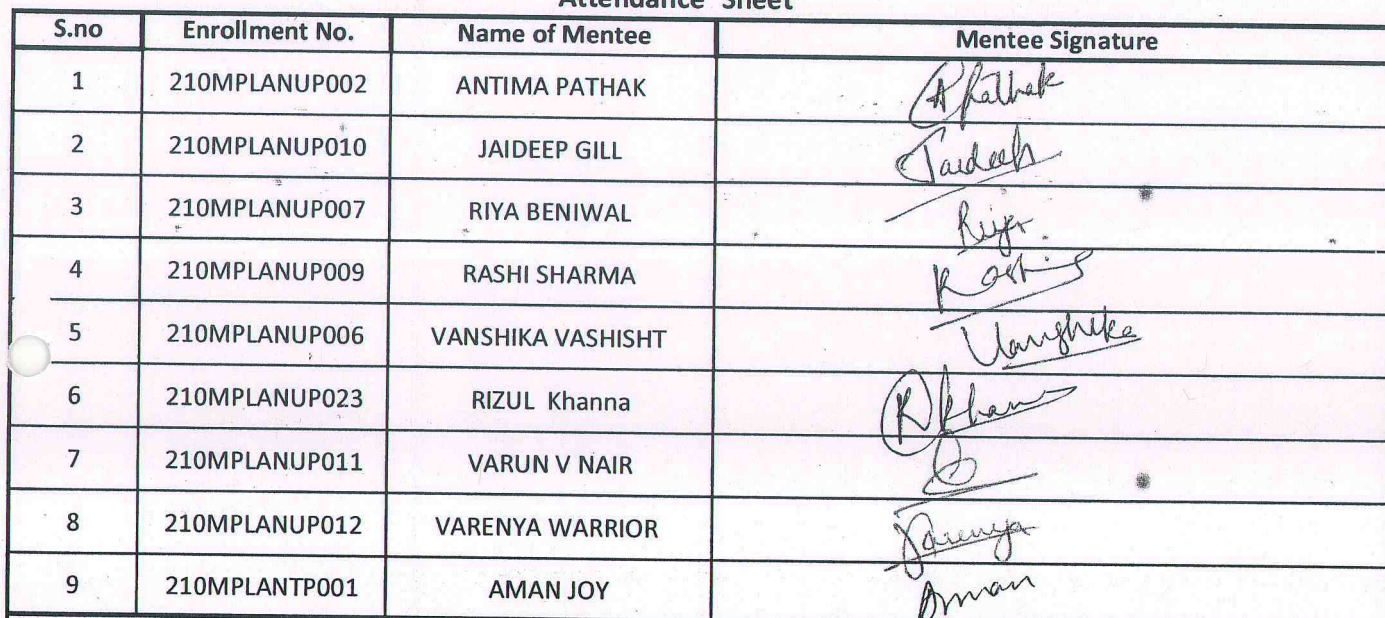 Attendance Sheet
S.no Enrollment No. Name of Mentee Mentee Signature
1 210MPLANUP002 ANTIMA PATHAK APathak
2 210MPLANUP010 JAIDEEP GILL Jaideep
3 210MPLANUP007 RIYA BENIWAL Riya
4 210MPLANUP009 RASHI SHARMA Rashi
5 210MPLANUP006 VANSHIKA VASHISHT Vanshika
6 210MPLANUP023 RIZUL Khanna RKhan
7 210MPLANUP011 VARUN V NAIR
8 210MPLANUP012 VARENYA WARRIOR Varenya
9 210MPLANTP001 AMAN JOY Aman